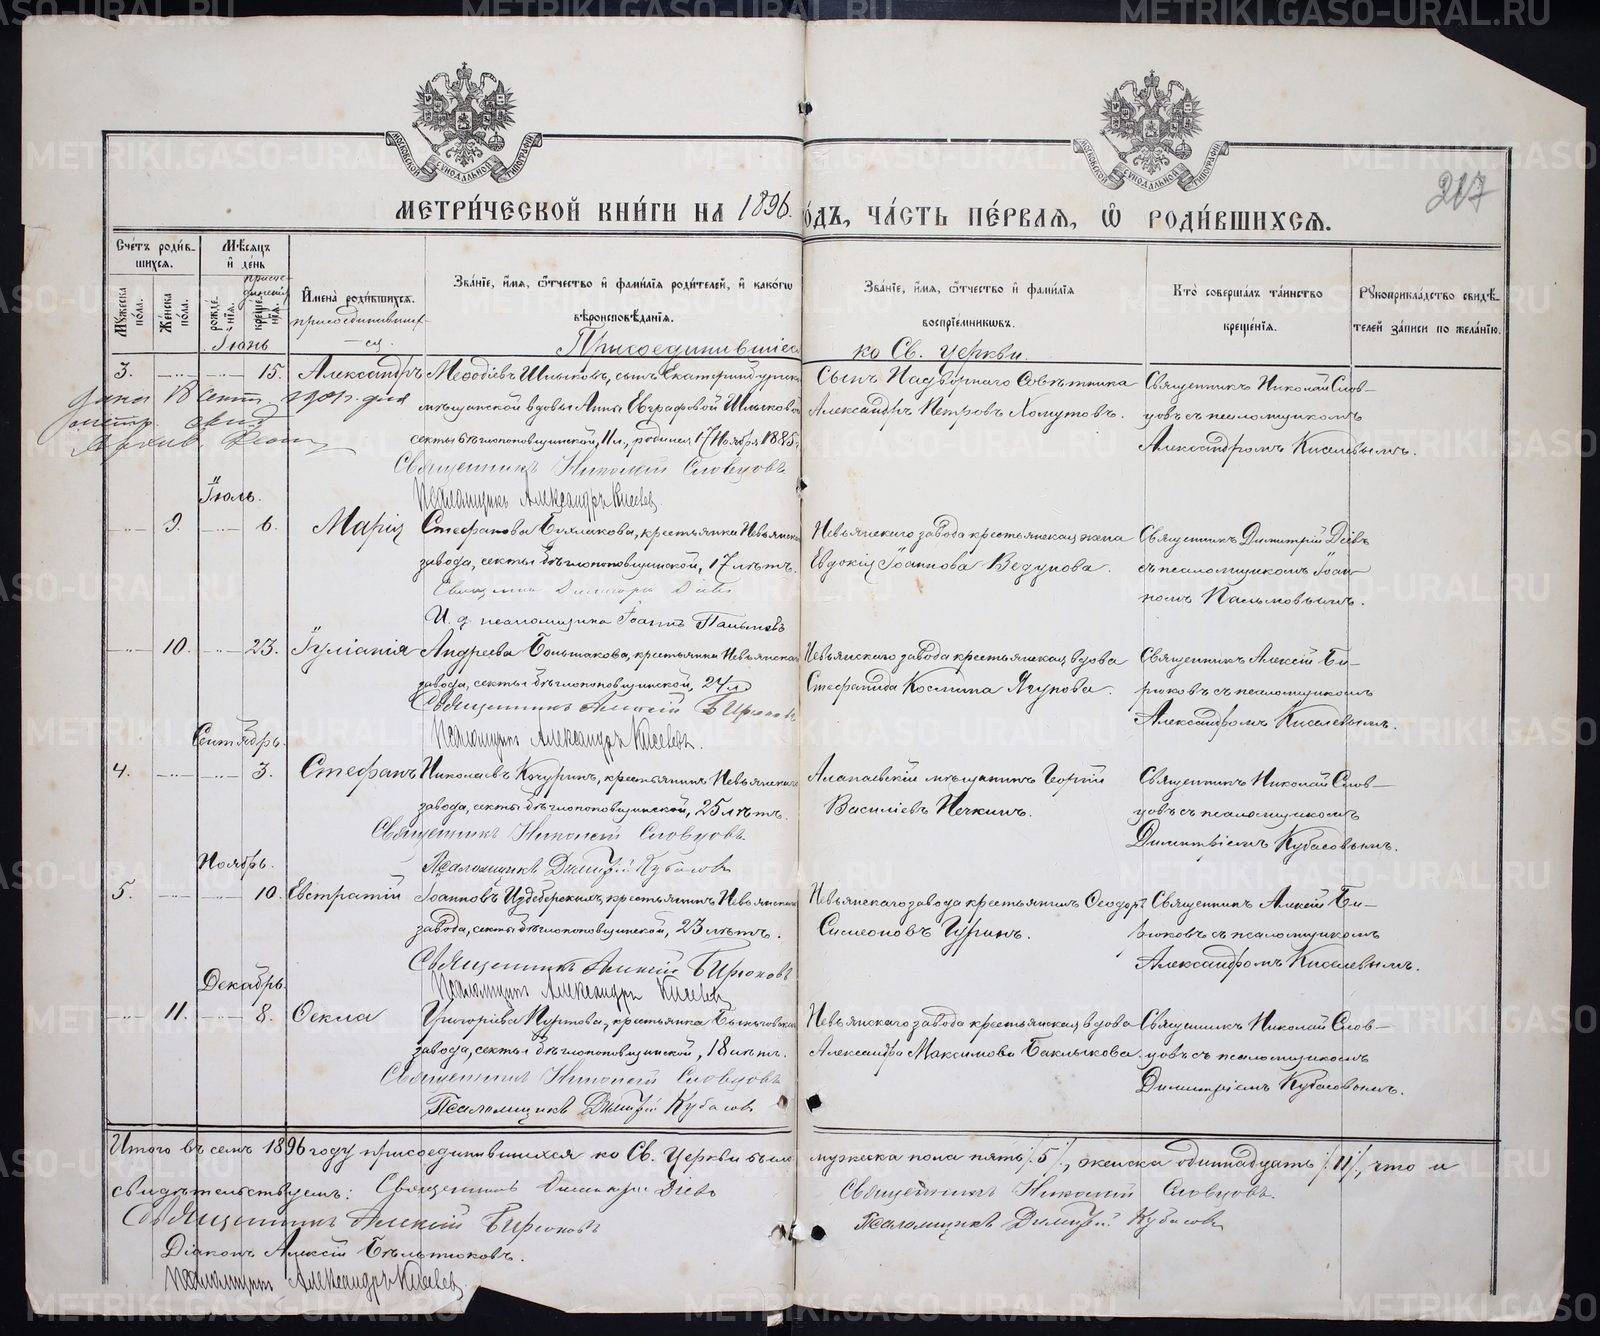 МОСКОВСКОЙ СѴНОДАЛЬНОЙ ТИПОГРАФІИ
МОСКОВСКОЙ СѴНОДАЛЬНОЙ ТИПОГРАФІИ
217
МЕТРИЧЕСКОЙ КНИГИ НА 1896. ГОДЪ, ЧАСТЬ ПЕРВАЯ, Ѡ РОДИВШИХСЯ.
Счетъ родив-
шихся.
Мужеска пола.
Женска пола.
Мѣсяцъ
и день
рожденія.
крещенія.
присоединенія
Имена родившихся.
присоединивших-
ся.
Званіе, имя, ѿчество и фамилія родителей, и какогѡ
вѣроисповѣданія.
Званіе, имя, ѿчество и фамилія
воспріемниковъ.
Кто совершалъ таинство
крещенія.
Рукоприкладство свидѣ-
телей записи по желанію.
Присоединившіеся ко Св. Церкви.
Іюнь
3. 15. Александръ
Меѳодіевъ Шлыковъ, сынъ Екатеринбургской
мѣщанской вдовы Анны Евграфовой Шлыковой
секты бѣглопоповщинской, 11 л., родился 17 Ноября 1885 г.
Священникъ Николай Словцовъ
Псаломщикъ Александръ Киселев
Сынъ Надворнаго Совѣтника
Александръ Петровъ Хомутовъ.
Священникъ Николай Слов-
цовъ съ псаломщикомъ
Александромъ Киселевымъ.
Іюль.
9. 6. Марія
Стефанова Бухлакова, крестьянка Невьянскаго
завода, секты бѣглопоповщинской, 17 лѣтъ.
Священникъ Димитрій Діевъ
И. д. псаломщика Іоаннъ Пальмовъ
Невьянскаго завода крестьянская жена
Евдокія Іоаннова Ведунова.
Священникъ Димитрій Діевъ
съ псаломщикомъ Іоан-
номъ Пальмовымъ.
10. 23. Іуліанія
Андреева Большакова, крестьянка Невьянскаго
завода, секты бѣглопоповщинской, 24 л.
Священникъ Алексій Бирюковъ
Псаломщикъ Александръ Киселевъ.
Невьянскаго завода крестьянская вдова
Стефанида Космина Ягунова.
Священникъ Алексій Би-
рюковъ съ псаломщикомъ
Александромъ Киселевымъ.
Сентябрь.
4. 3. Стефанъ
Николаевъ Кочуринъ, крестьянинъ Невьянскаго
завода, секты бѣглопоповщинской, 25 лѣтъ.
Священникъ Николай Словцовъ.
Псаломщикъ Димитрій Кубасовъ
Алапаевскій мѣщанинъ Георгій
Василіевъ Печкинъ.
Священникъ Николай Слов-
цовъ съ псаломщикомъ
Димитріемъ Кубасовымъ.
Ноябрь.
5. 10. Евстратій
Іоанновъ крестьянинъ Невьянскаго
завода, секты бѣглопоповщинской, 23 лѣтъ.
Священникъ Алексій Бирюковъ
Псаломщикъ Александръ Киселевъ
Невьянскаго завода крестьянинъ Ѳеодоръ
Симеоновъ Гуринъ.
Священникъ Алексій Би-
рюковъ съ псаломщикомъ
Александромъ Киселевымъ.
Декабрь.
11. 8. Ѳекла
Григоріева Пуртова, крестьянка Быньговскаго
завода, секты бѣглопоповщинской, 18 лѣтъ.
Священникъ Николай Словцовъ
Псаломщикъ Димитрій Кубасовъ
Невьянскаго завода крестьянская вдова
Александра Максимова Баклыкова.
Священникъ Николай Слов-
цовъ съ псаломщикомъ
Димитріемъ Кубасовымъ.
Итого въ семъ 1896 году присоединившихся ко Св. Церкви было мужеска пола пять /5/, женска одиннадцать /11/, что и
свидѣтельствуемъ: Священникъ Димитрій Діевъ
Священникъ Алексій Бирюковъ
Діаконъ Алексій Бѣльтюковъ.
Псаломщикъ Александръ Киселев
Священникъ Николай Словцовъ.
Псаломщикъ Димитрій Кубасовъ
METRIKI.GASO-URAL.RU